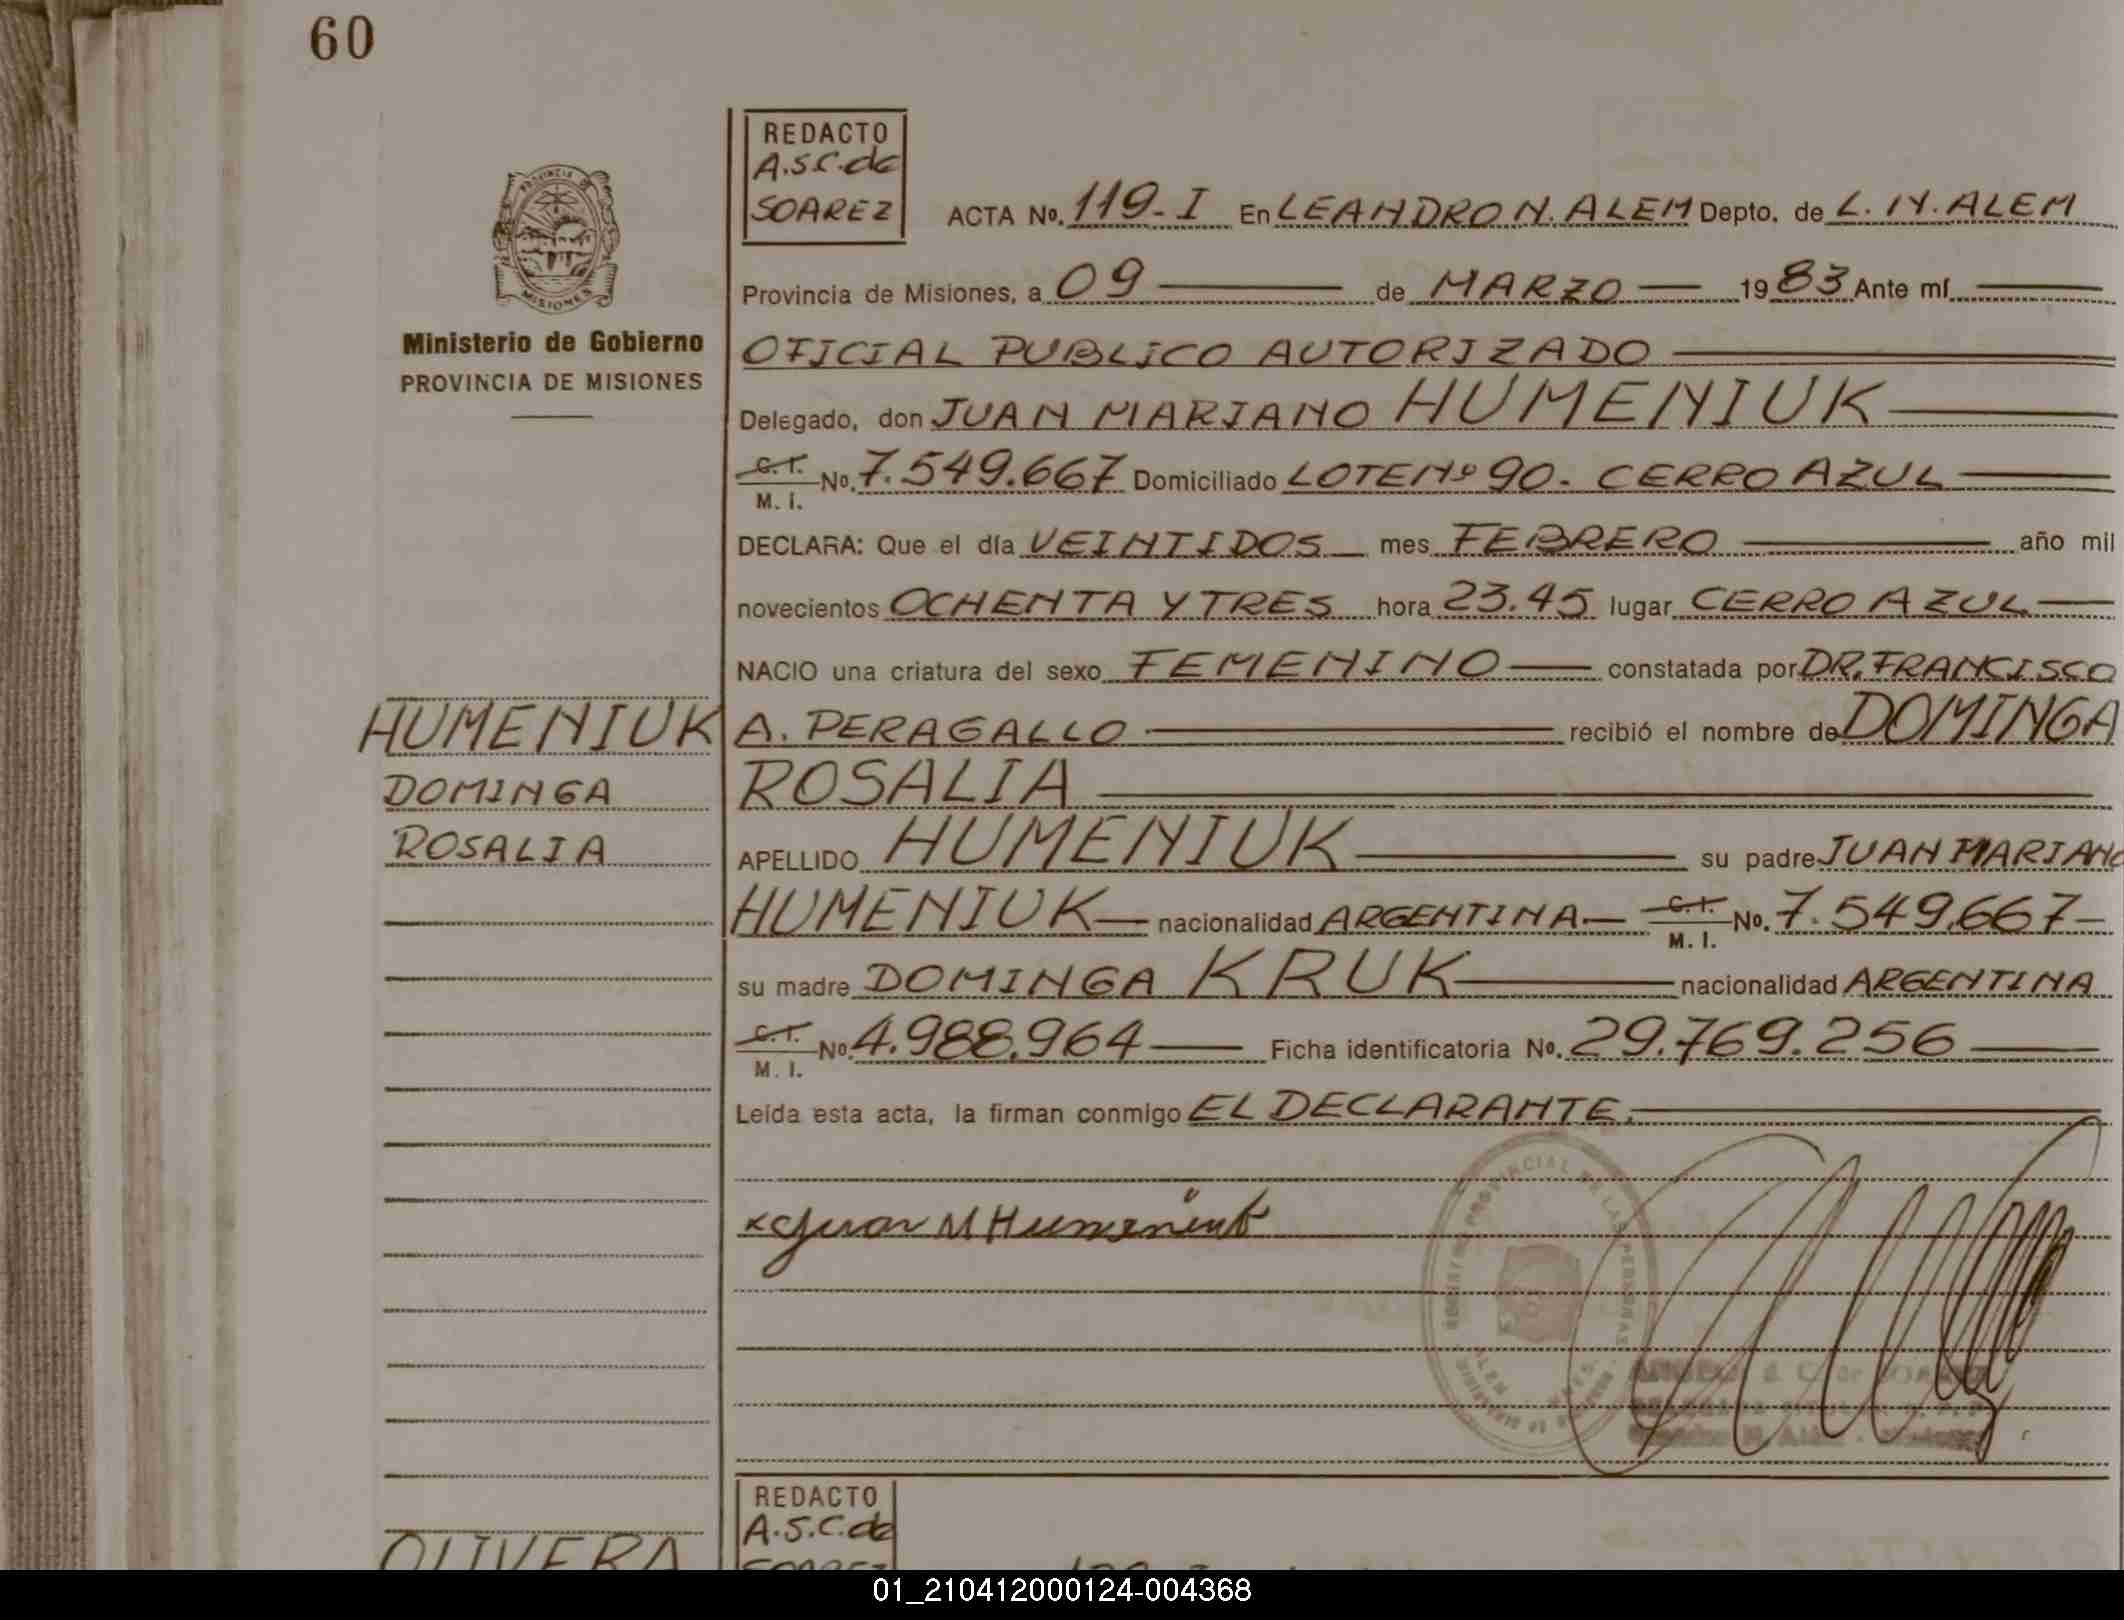 60
REDACTO
A.S.C. de
SOAREZ
ACTA No. 119-I En LEANDRO N. ALEM Depto. de L. N. ALEM
PROVINCIA DE
MISIONES
Provincia de Misiones, a 09 de MARZO 1983 Ante mí
Ministerio de Gobierno
PROVINCIA DE MISIONES
OFICIAL PUBLICO AUTORIZADO
Delegado, don JUAN MARIANO HUMENIUK
C. I. M. I. No. 7.549.667 Domiciliado LOTE Nº 90 - CERRO AZUL
DECLARA: Que el día VEINTIDOS mes FEBRERO año mil
novecientos OCHENTA Y TRES hora 23.45 lugar CERRO AZUL
NACIO una criatura del sexo FEMENINO constatada por DR. FRANCISCO
HUMENIUK
DOMINGA
ROSALIA
A. PERAGALLO recibió el nombre de DOMINGA
ROSALIA
APELLIDO HUMENIUK su padre JUAN MARIANO
HUMENIUK nacionalidad ARGENTINA C. I. M. I. No. 7.549.667
su madre DOMINGA KRUK nacionalidad ARGENTINA
C. I. M. I. No. 4.988.964 Ficha identificatoria No. 29.769.256
Leída esta acta, la firman conmigo EL DECLARANTE.
x Juan M Humeniuk
PROVINCIAL DE LAS PERSONAS
OLIVERA
REDACTO
A.S.C. de
SOAREZ
01_210412000124-004368